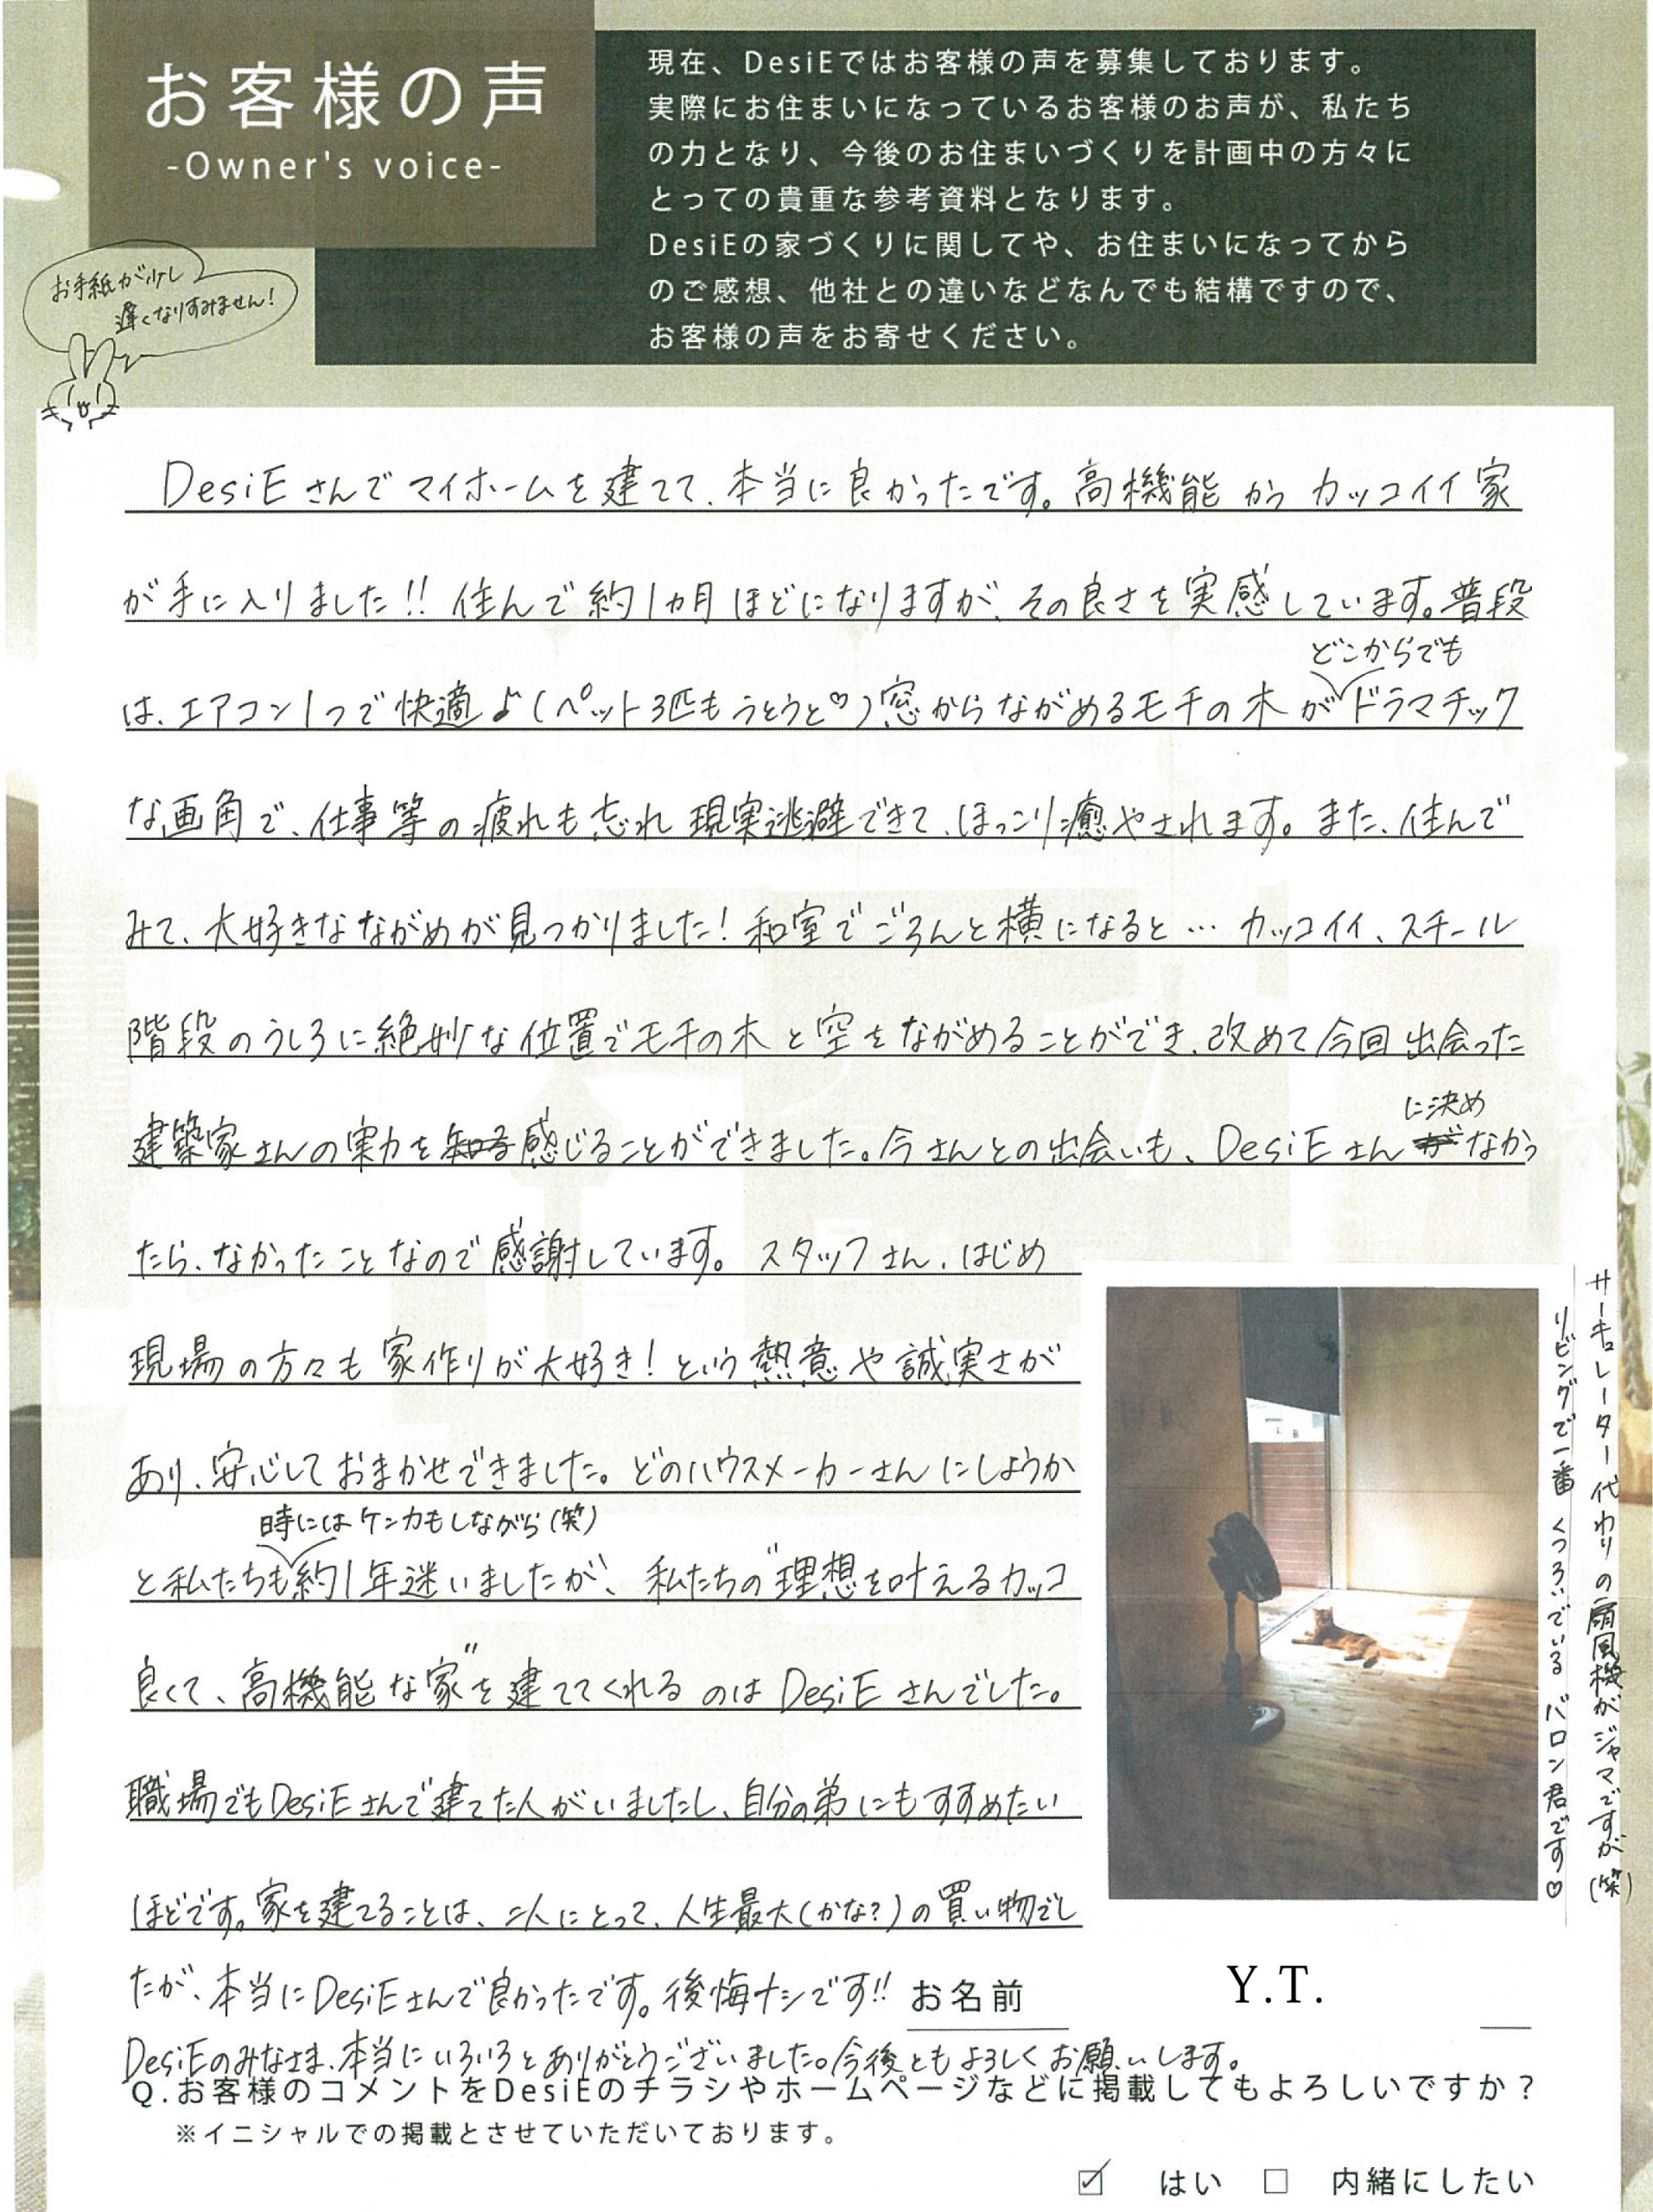 お客様の声
-Owner's voice-
現在、DesiEではお客様の声を募集しております。
実際にお住まいになっているお客様のお声が、私たち
の力となり、今後のお住まいづくりを計画中の方々に
とっての貴重な参考資料となります。
DesiEの家づくりに関してや、お住まいになってから
のご感想、他社との違いなどなんでも結構ですので、
お客様の声をお寄せください。
お手紙が少し
遅くなりすみません!
DesiEさんでマイホームを建てて、本当に良かったです。高機能かつカッコイイ家
が手に入りました!! 住んで約1ヵ月ほどになりますが、その良さを実感しています。普段
どこからでも
は、エアコン1つで快適♪(ペット3匹もうとうと♡)窓からながめるモチの木がドラマチック
な画角で、仕事等の疲れも忘れ現実逃避できて、ほっこり癒やされます。また、住んで
みて、大好きなながめが見つかりました!和室でごろんと横になると… カッコイイ、スチール
階段のうしろに絶妙な位置でモチの木と空をながめることができ、改めて今回出会った
に決め
建築家さんの実力を知る感じることができました。今さんとの出会いも、DesiEさんがなかっ
たら、なかったことなので感謝しています。スタッフさん、はじめ
現場の方々も家作りが大好き!という熱意や誠実さが
あり、安心しておまかせできました。どのハウスメーカーさんにしようか
時にはケンカもしながら(笑)
と私たちも約1年迷いましたが、私たちの"理想を叶えるカッコ
良くて、高機能な家"を建ててくれるのはDesiEさんでした。
職場でもDesiEさんで建てた人がいましたし、自分の弟にもすすめたい
ほどです。家を建てることは、二人にとって、人生最大(かな?)の買い物でし
たが、本当にDesiEさんで良かったです。後悔ナシです!!
サーキュレーター代わりの扇風機がジャマですが(笑)
リビングで一番くつろいでいるバロン君です♡
お名前 Y.T.
DesiEのみなさま、本当にいろいろとありがとうございました。今後ともよろしくお願いします。
Q.お客様のコメントをDesiEのチラシやホームページなどに掲載してもよろしいですか?
※イニシャルでの掲載とさせていただいております。
☑ はい □ 内緒にしたい